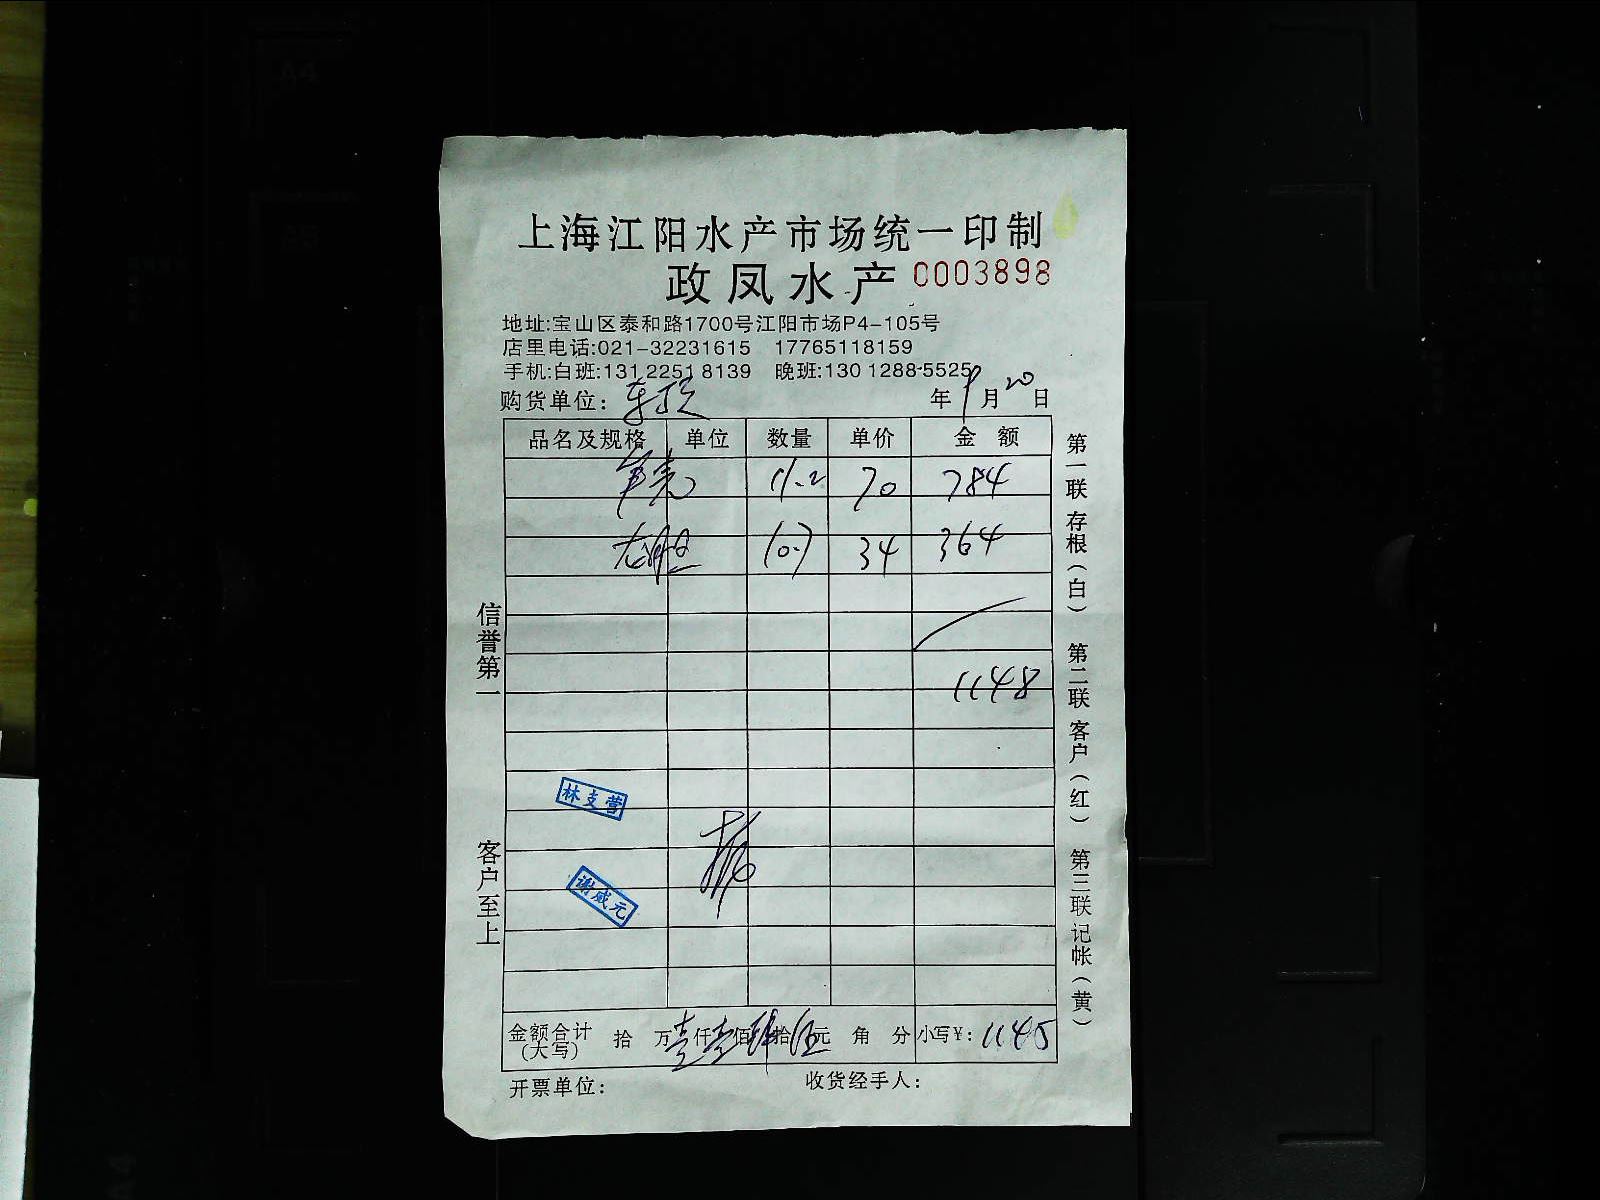 上海江阳水产市场统一印制
政凤水产 0003898
地址:宝山区泰和路1700号江阳市场P4-105号
店里电话:021-32231615 17765118159
手机:白班:131 2251 8139 晚班:130 1288 5525
购货单位: 年 9 月 20 日
品名及规格 单位 数量 单价 金额
11.2 70 784
龙胆 10.7 34 364
1148
林支营
谢威元
金额合计(大写) 拾 万 壹 仟 壹 佰 肆 拾 伍 元 角 分 小写¥: 1145
开票单位: 收货经手人:
信誉第一 客户至上
第一联存根(白) 第二联客户(红) 第三联记帐(黄)